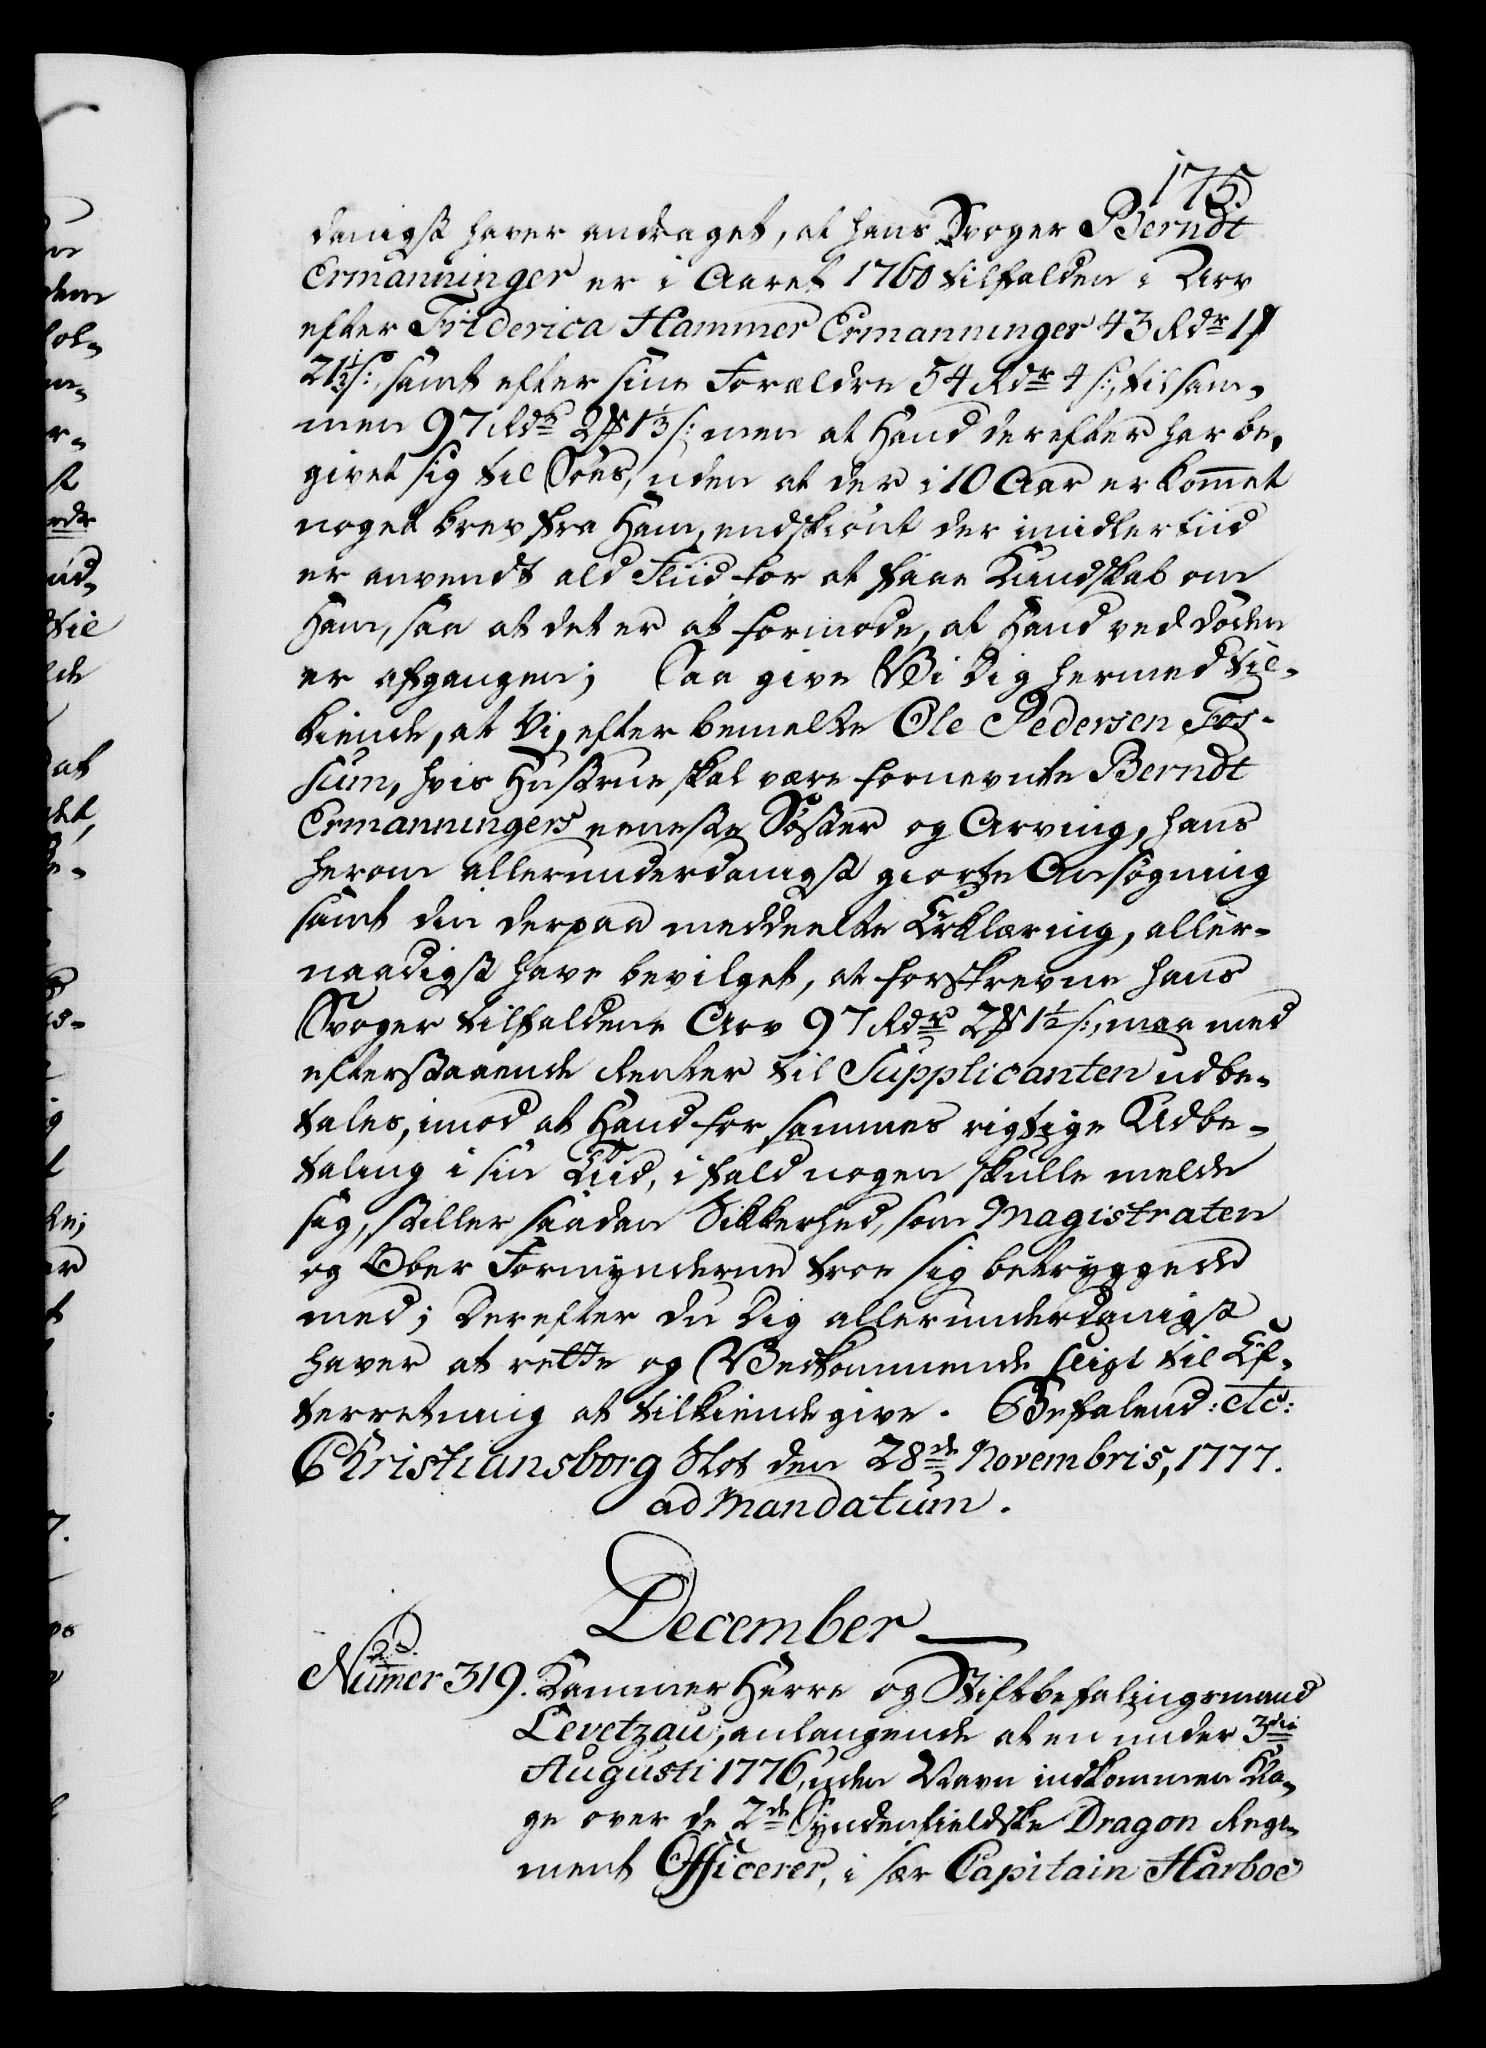 175
danigst haver andraget, at hans Svoger Berndt
Ermanninger er i Aaret 1760 tilfalden i Arv
efter Friderica Hammer Ermanninger 43 Rdr 1 ꝑ
21½ s:, samt efter sine Forældre 54 Rdr 4 s:, tilsam-
men 97 Rdr 2 ꝑ 1½ s: men at Hand derefter har be-
givet sig til Söes, uden at der i 10 Aar er kom̅et
noget brev fra Ham, endskiönt der imidlertiid
er anvendt ald Fliid for at faae Kundskab om
Ham, saa at det er at formode, at Hand ved döden
er afgangen; Saa give Vi Dig hermed til-
kiende, at Vi, efter bemelte Ole Pedersen Fos-
sum, hvis Hustrue skal være fornevnte Berndt
Ermanningers eeneste Söster og Arving, hans
herom allerunderdanigst giorte Ansögning
samt din derpaa meddeelte Erklæring, aller-
naadigst have bevilget, at forskrevne hans
Svoger tilfaldene Arv 97 Rdr 2 ꝑ 1½ s:, maa med
efterstaaende Renter til Supplicanten udbe-
tales, imod at Hand for sammes rigtige Udbe-
taling i sin Tiid, i fald nogen skulle melde
sig, stiller saadan Sikkerhed, som Magistraten
og Ober Formynderne troe sig betryggede
med; Derefter du Dig allerunderdanigst
haver at rette og Vedkommende sligt til Ef-
terretning at tilkiendegive. Befalend: etc:
Christiansborg Slot den 28de Novembris, 1777.
ad Mandatum.
December
2d.
Numer 319. Kammer Herre og Stiftbefalingsmand
Levetzau, anlangende at en under 3die
Augusti 1776, uden Navn indkommen Kla-
ge over de 2de Syndenfieldske Dragon Regi-
ment Officerer, i sær Capitain Harboe